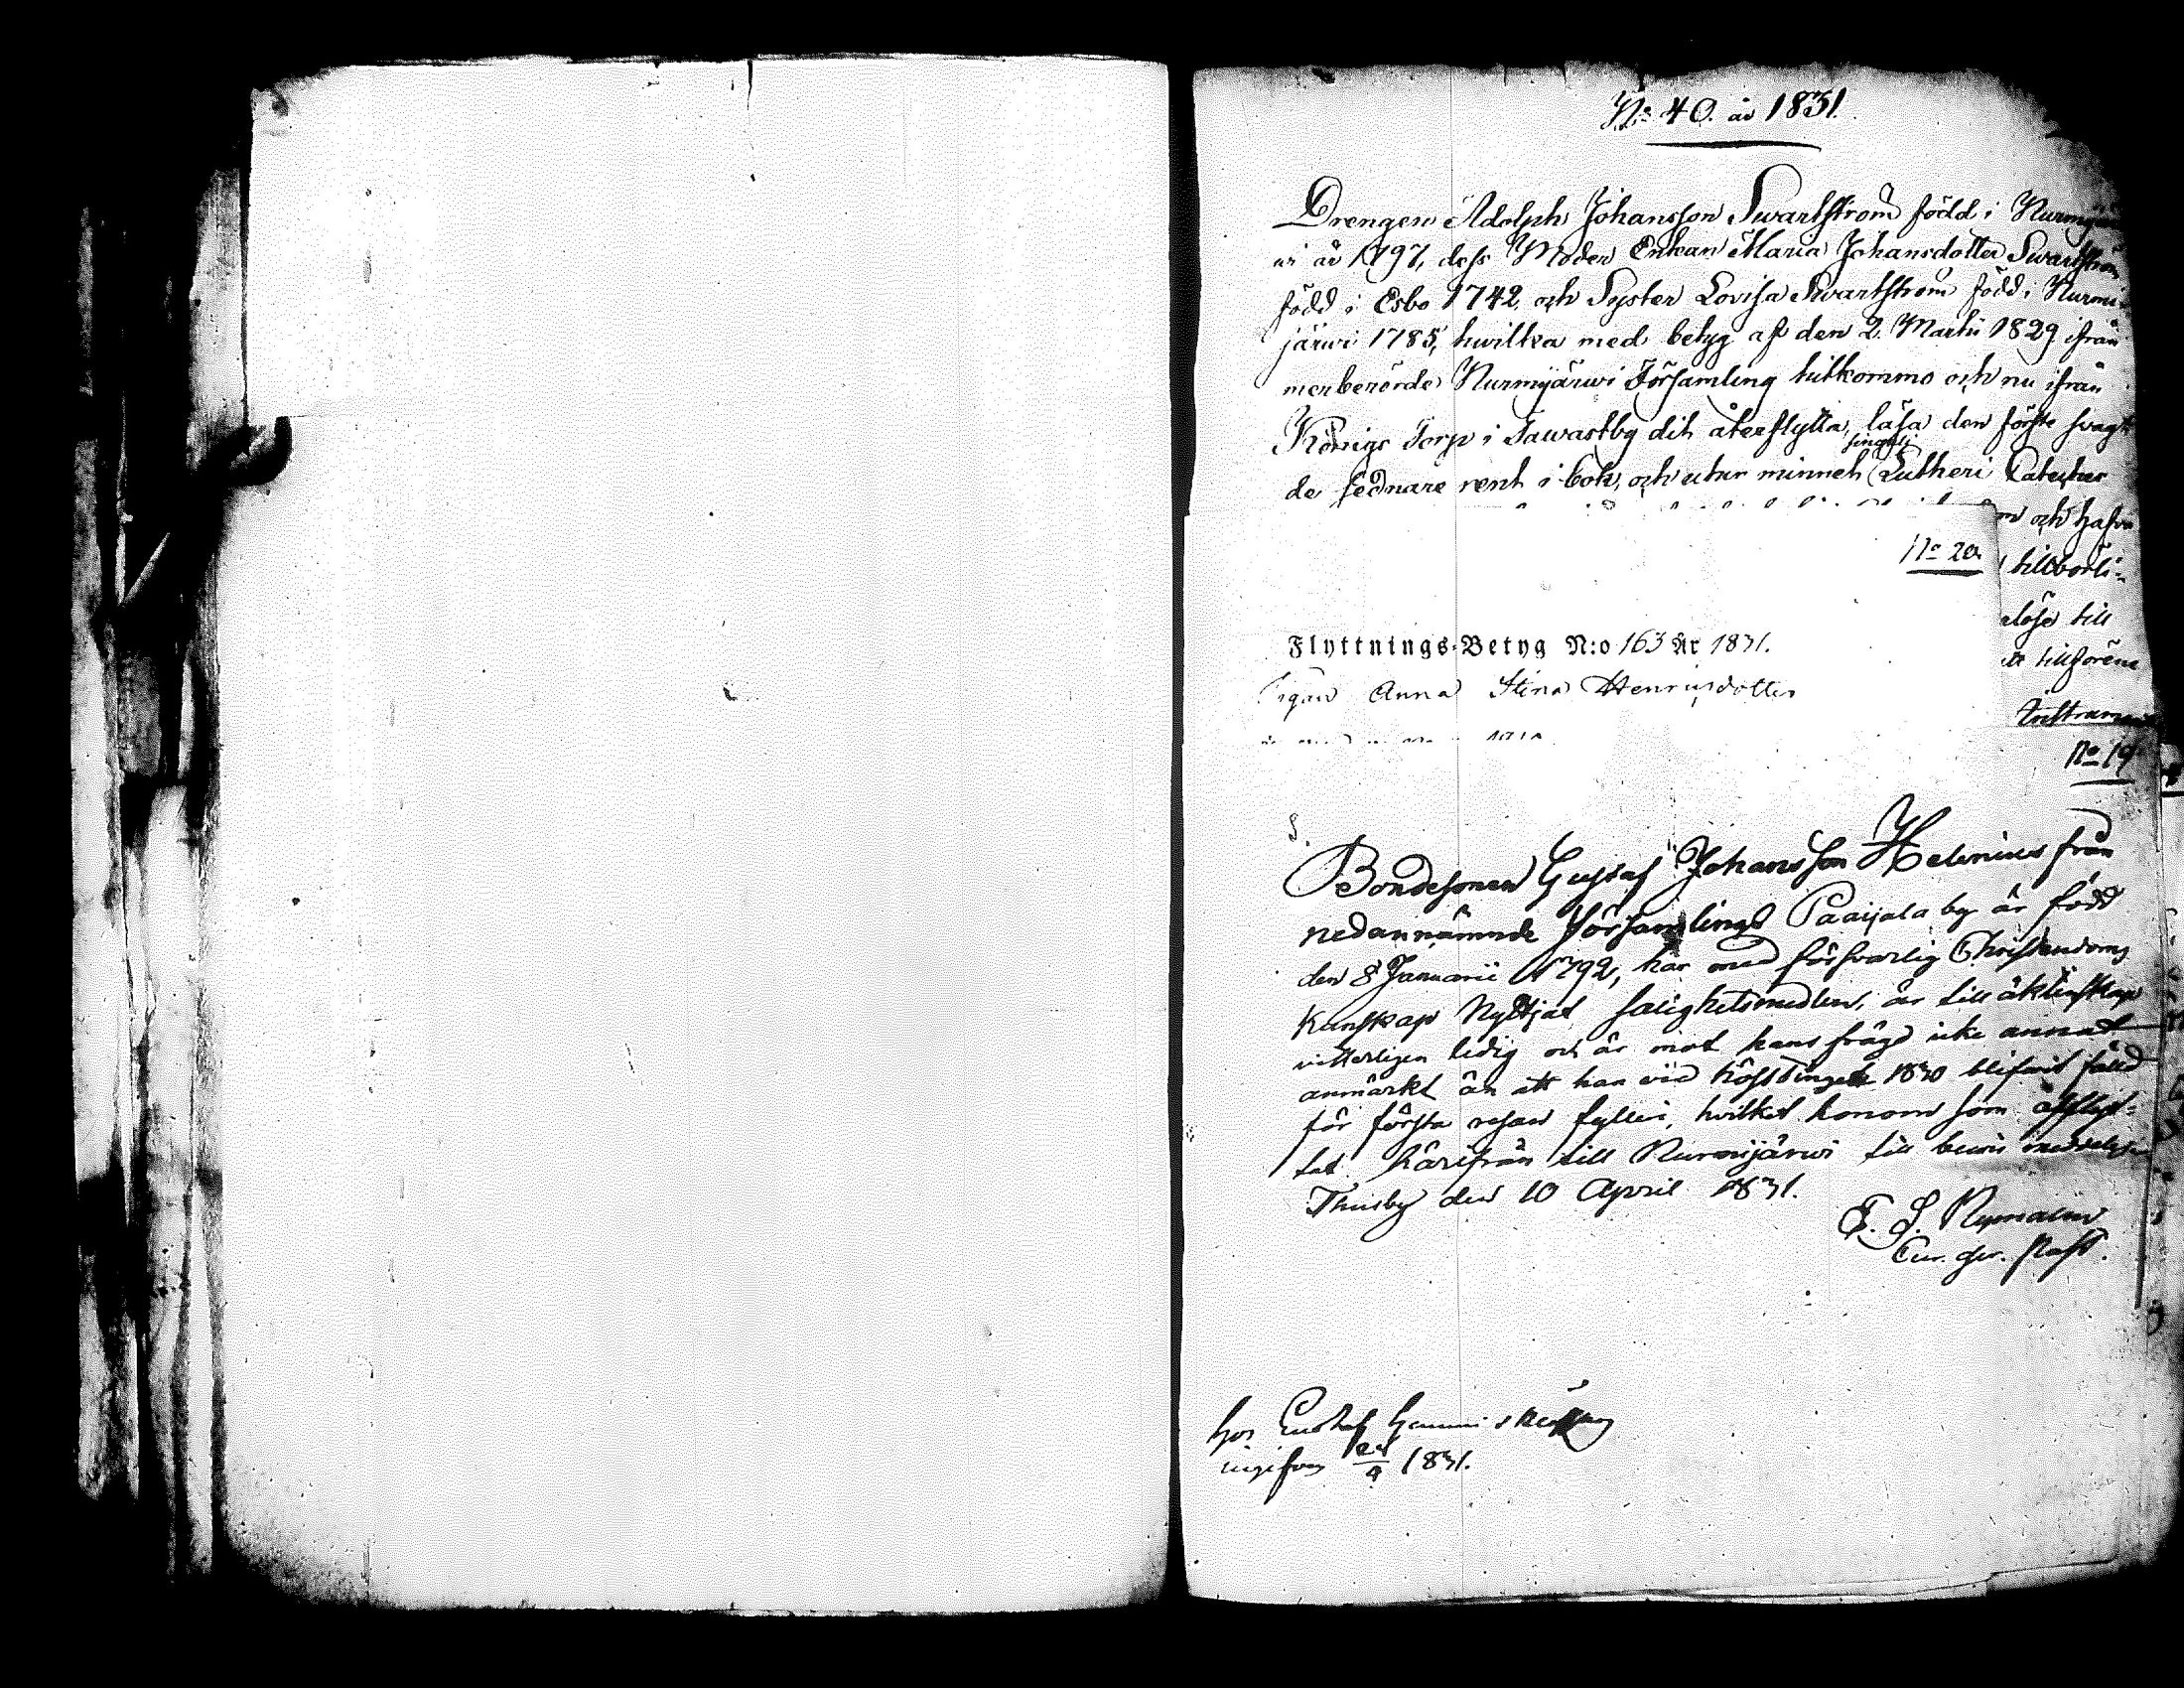 No 40. år 1831.
Drengen Adolph Johansson Swartström född i Nurmijär
wi år 1797, dess Moder Enkan Maria Johansdotter Swartström
född i Esbo 1742, och Syster Lovisa Swartström född i Nurmi-
järwi 1785, hwilka med betyg af den 2. Martii 1829 ifrån
merberörde Nurmijärwi Församling hitkommo och nu ifrån
Königs Torp i Tawastby dit återflytta, läsa den förste svagt
de sednare rent i bok, och utur minnet Lutheri Cateches
och hafva
No 20.
tillbörli-
till
Flyttnings-Betyg N:o 163 År 1831.
tillförene
Pigan Anna Stina Henricsdotter
No 19
Bondesonen Gustaf Johansson Helenius från
nedannämnde Församlings Paaijala by är född
den 8 Januarii 1792, har med försvarlig Christendoms
kunskap Nyttjat salighetsmedlen, är till äktenskap
vitterligen ledig och är mot hans frägd icke annat
anmärkt än att han vid Höstdinget 1830 blifvit fälld
för första resan fylleri, hvilket honom som afflyt-
tat härifrån till Nurmijärwi till bevis meddelas.
Thusby den 10 April 1831.
Cur. ger. Past.
hos Gustaf
1831.